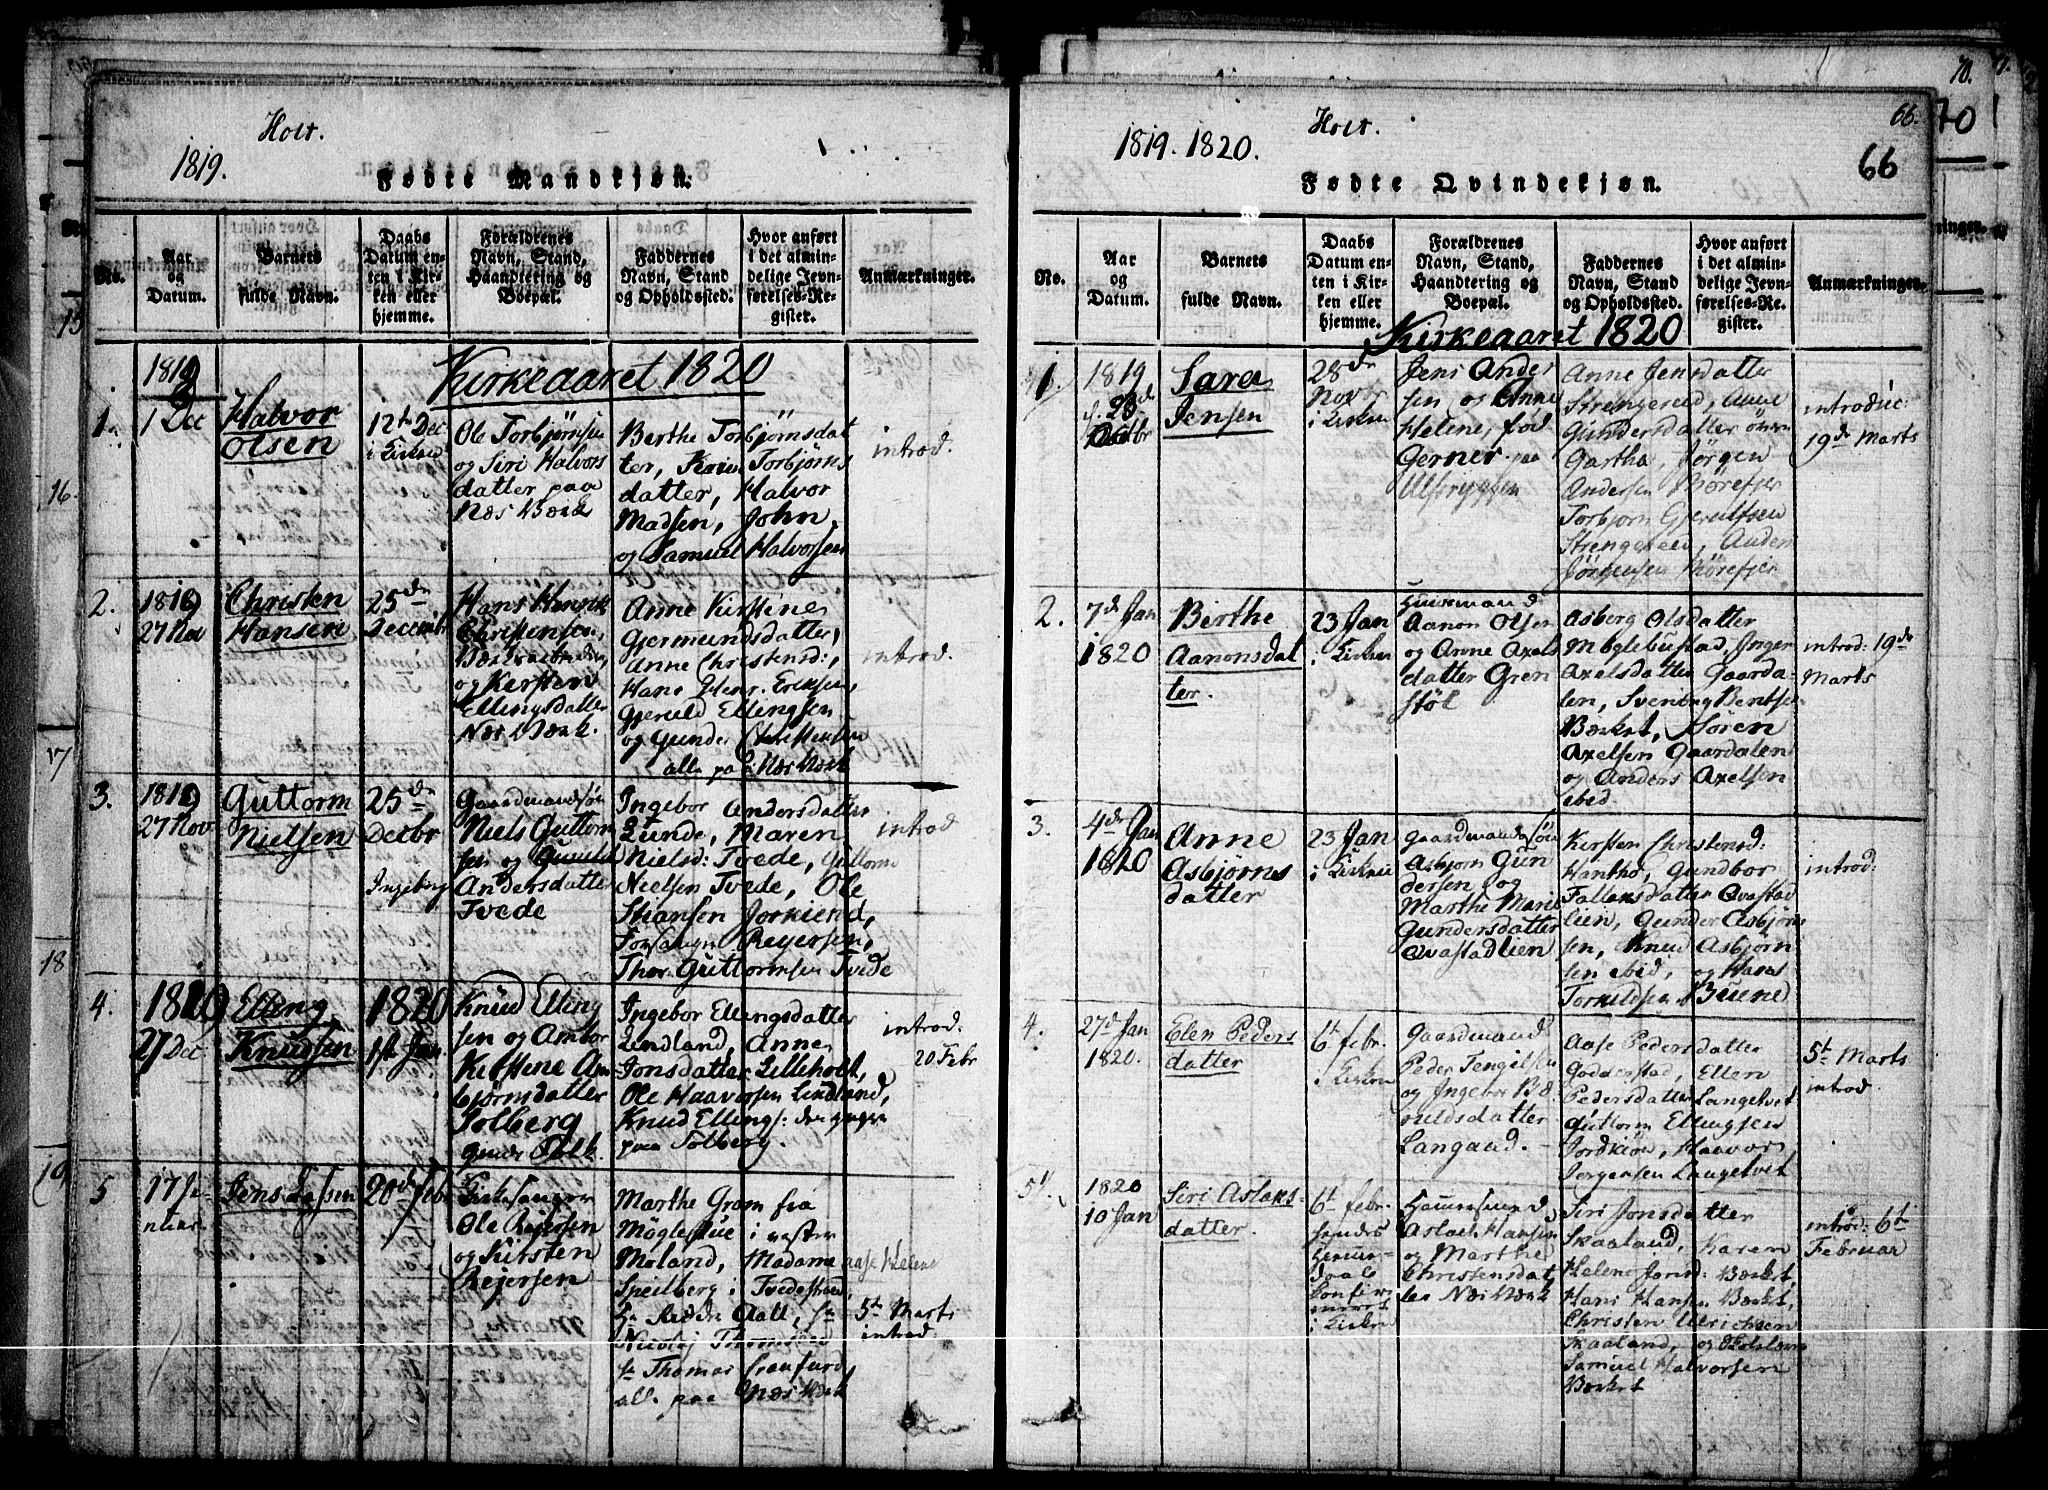 Holt.
1819.
Fødte Mandkjøn.
No.
Aar
og
Datum.
Barnets
fulde Navn.
Daabs
Datum en-
ten i Kir-
ken eller
hjemme.
Forældrenes
Navn, Stand,
Haandtering og
Boepæl.
Faddernes
Navn, Stand
og Opholdssted.
Hvor anført
i det almin-
delige Jevn-
førelses-Re-
gister.
Anmærkninger.
Kirkeaaret 1820
1.
1819
1 Dec
Halvor
Olsen
12t Dec
i Kirken
Ole Torbjørnsen
og Siri Halvors
datter paa
Næs Værk
Berthe Torbjørnsdat
ter, Karen Torbjørns
datter, Halvor
Madsen, John
og Samuel Halvorsen
introd.
2.
1819
27 Nov
Christen
Hansen
25de
Decemb
Hans Henrik
Christensen,
og Kersten
Ellingsdatter
Næs Værk.
Anne Kirstine
Gjermundsdatter,
Anne Christensd:,
Hans Henr. Eriksen,
Gjeruld Ellingsen
og Gunder Christensen
alle paa Næs Værk
introd.
3.
1819
27 Nov
Guttorm
Nielsen
25de
Decbr
Ingeborg
Gaardmandsøn
Niels Guttorm
sen og Gunild
Andersdatter
Tvede
Ingebor Andersdatter
Lunde, Maren
Nielsd: Tvede, Guttorm
Nielsen Tvede, Ole
Stiansen
Reyersen,
Thor Guttormsen Tvede
introd
4.
1819
27 Dec
Elling
Knudsen
1820
1st Jan
Knud Elling
sen og Ambor
Kirstene Am
bjørnsdatter
Solberg
Ingebor Ellingsdatter
Lindland, Anne
Jonsdatter Lilleholt,
Ole Haavorsen Lindland,
Knud Ellings: den yngre
paa Solberg.
introd.
20 Febr
5
17 Ja-
nuar.
Jens Lassen
20de Feb
Kirkesanger
Ole Rejersen
og Kirsten
Rejersen
Marthe Grom fra
Møglestue i vestre
Moland, Madame
Speilberg i Tvedestrand,
Hr Aall, Hr
Nicolaj
Hr Thomas Cranfurd
alle paa Næs Værk
Aase Helene
5te Marts
introd.
Holt.
1819. 1820.
66.
66
70.
70
Fødte Qvindekjøn.
No.
Aar
og
Datum.
Barnets
fulde Navn.
Daabs
Datum en-
ten i Kir-
ken eller
hjemme.
Forældrenes
Navn, Stand,
Haandtering og
Boepæl.
Faddernes
Navn, Stand
og Opholdssted.
Hvor anført
i det almin-
delige Jevn-
førelses-Re-
gister.
Anmærkninger.
Kirkeaaret 1820
1.
1819
d. 23de
Sara
Jensen
28de
Nov
i Kirken
Jens Ander
sen og Anne
Helene, fød
Gerner paa
Ulsryggen
Anne Jensdatter
Strengereid, Anne
Gundersdatter
Gartha, Jørgen
Andersen Mørefjer
Torbjørn Gjerulfsen
Strengereid, Anders
Jørgensen Mørefjer
introduc:
19de Marts
2.
7de Jan
1820
Birthe
Aanonsdat
ter.
23 Jan
i Kirken
Huusmand
Aanon Olsen
og Anne Axels
datter Gren
støl
Asberg Olsdatter
Møglebustad, Inger
Axelsdatter Gaarda-
len, Svening Bentsen
Værket, Søren
Axelsen Gaardalen
og Anders Axelsen
ibid.
introd: 19de
Marts
3.
4de Jan
1820
Anne
Asbjørns
datter
23 Jan
i Kirken
Gaardmandssøn
Asbjørn Gun
dersen og
Marthe Marie
Gundersdatter
Qvastadlien
Kirsten Christensd:
Hantho, Gundbor
Tallaksdatter Qvastad
lien, Gunder Asbjørn
sen, Knud Asbjørn
sen ibid, og Hans
Torkildsen Buene
introd:
4.
27de Jan
1820.
Elen Peders
datter
6t febr.
i Kirken
Gaardmand
Peder Tengelsen
og Ingebor
ouldsdatter
Langaard.
Aase Pedersdatter
Godderstad, Ellen
Pedersdatter Langetvet
Guttorm Ellingsen
Haavor
Jørgensen Langetvet
5te Marts
introd.
5.
1820
10 Jan
Siri Aslaks-
datter.
6t febr.
hendes
hiemme-
daab
confir-
meret
i Kirken
Aslach Hansen
og Marthe
Christensdat
ter Næs Værk
Siri Jonsdatter
Skaaland, Karen
Helene Jonsd: Værket,
Hans Hansen Værket,
Christen Ulrichsen
Skaaland, og
Samuel Halvorsen
Værket
introd: 6t
Februar
15
16.
17
18
19